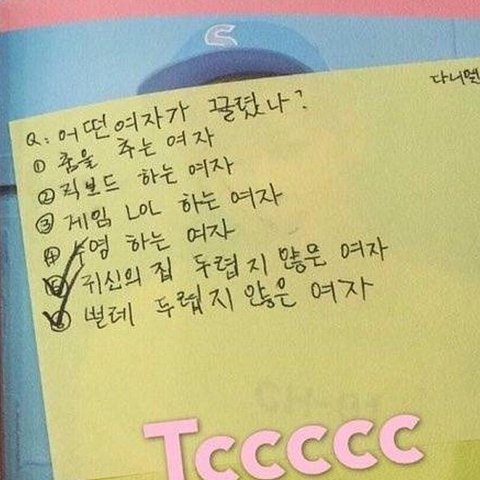 다니엘
Q: 어떤여자가 끌렸나?
① 춤을 추는 여자
② 리보드 하는 여자
③ 게임 LOL 하는 여자
④ 수영 하는 여자
⑤ 귀신의 집 두렵지 않은 여자
⑥ 벌레 두렵지 않은 여자
Tccccc